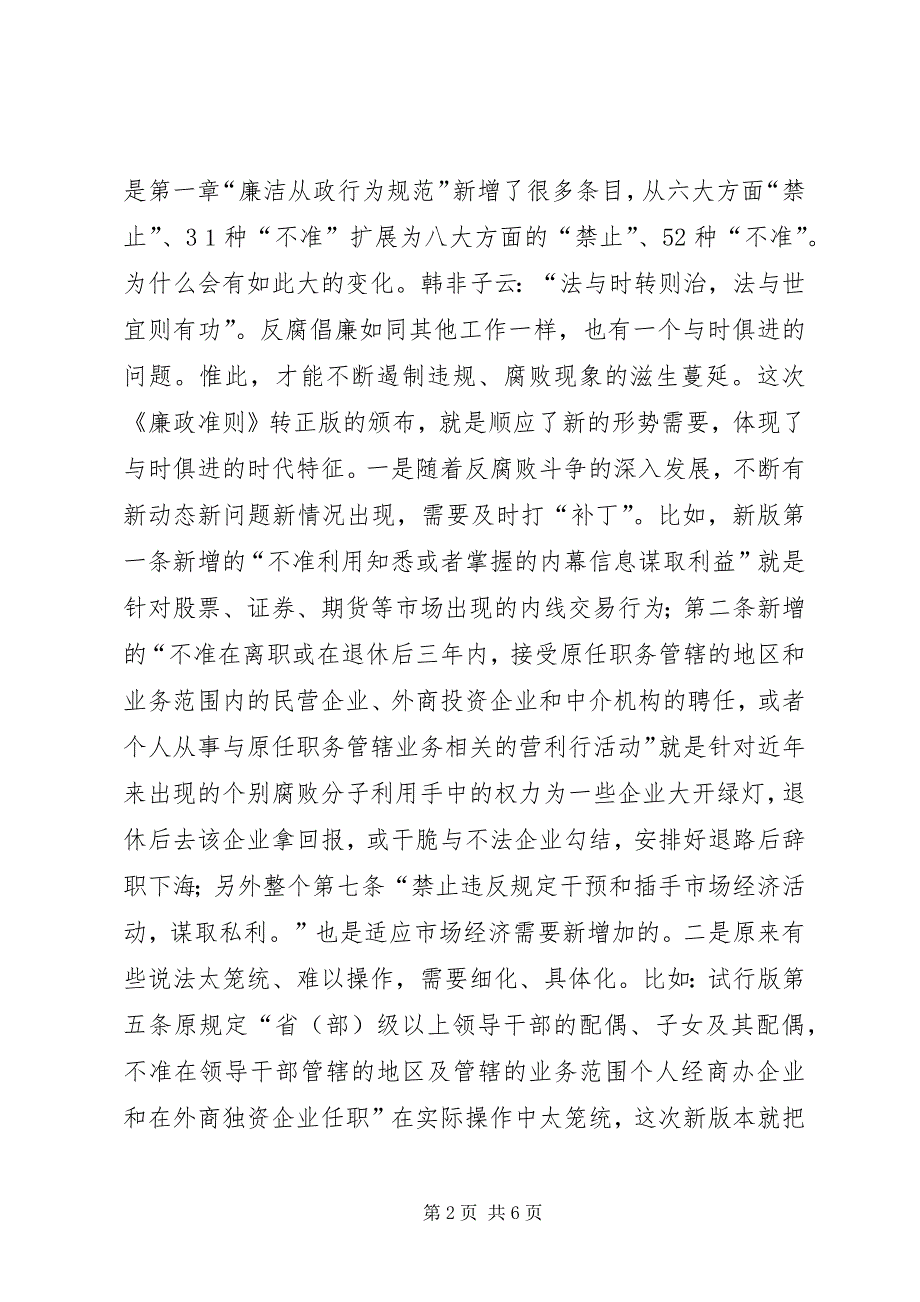 是第一章“廉洁从政行为规范”新增了很多条目，从六大方面“禁
止”、31种“不准”扩展为八大方面的“禁止”、52种“不准”。
为什么会有如此大的变化。韩非子云：“法与时转则治，法与世
宜则有功”。反腐倡廉如同其他工作一样，也有一个与时俱进的
问题。惟此，才能不断遏制违规、腐败现象的滋生蔓延。这次
《廉政准则》转正版的颁布，就是顺应了新的形势需要，体现了
与时俱进的时代特征。一是随着反腐败斗争的深入发展，不断有
新动态新问题新情况出现，需要及时打“补丁”。比如，新版第
一条新增的“不准利用知悉或者掌握的内幕信息谋取利益”就是
针对股票、证券、期货等市场出现的内线交易行为；第二条新增
的“不准在离职或在退休后三年内，接受原任职务管辖的地区和
业务范围内的民营企业、外商投资企业和中介机构的聘任，或者
个人从事与原任职务管辖业务相关的营利行活动”就是针对近年
来出现的个别腐败分子利用手中的权力为一些企业大开绿灯，退
休后去该企业拿回报，或干脆与不法企业勾结，安排好退路后辞
职下海；另外整个第七条“禁止违反规定干预和插手市场经济活
动，谋取私利。”也是适应市场经济需要新增加的。二是原来有
些说法太笼统、难以操作，需要细化、具体化。比如：试行版第
五条原规定“省（部）级以上领导干部的配偶、子女及其配偶，
不准在领导干部管辖的地区及管辖的业务范围个人经商办企业
和在外商独资企业任职”在实际操作中太笼统，这次新版本就把
第 2 页 共 6 页